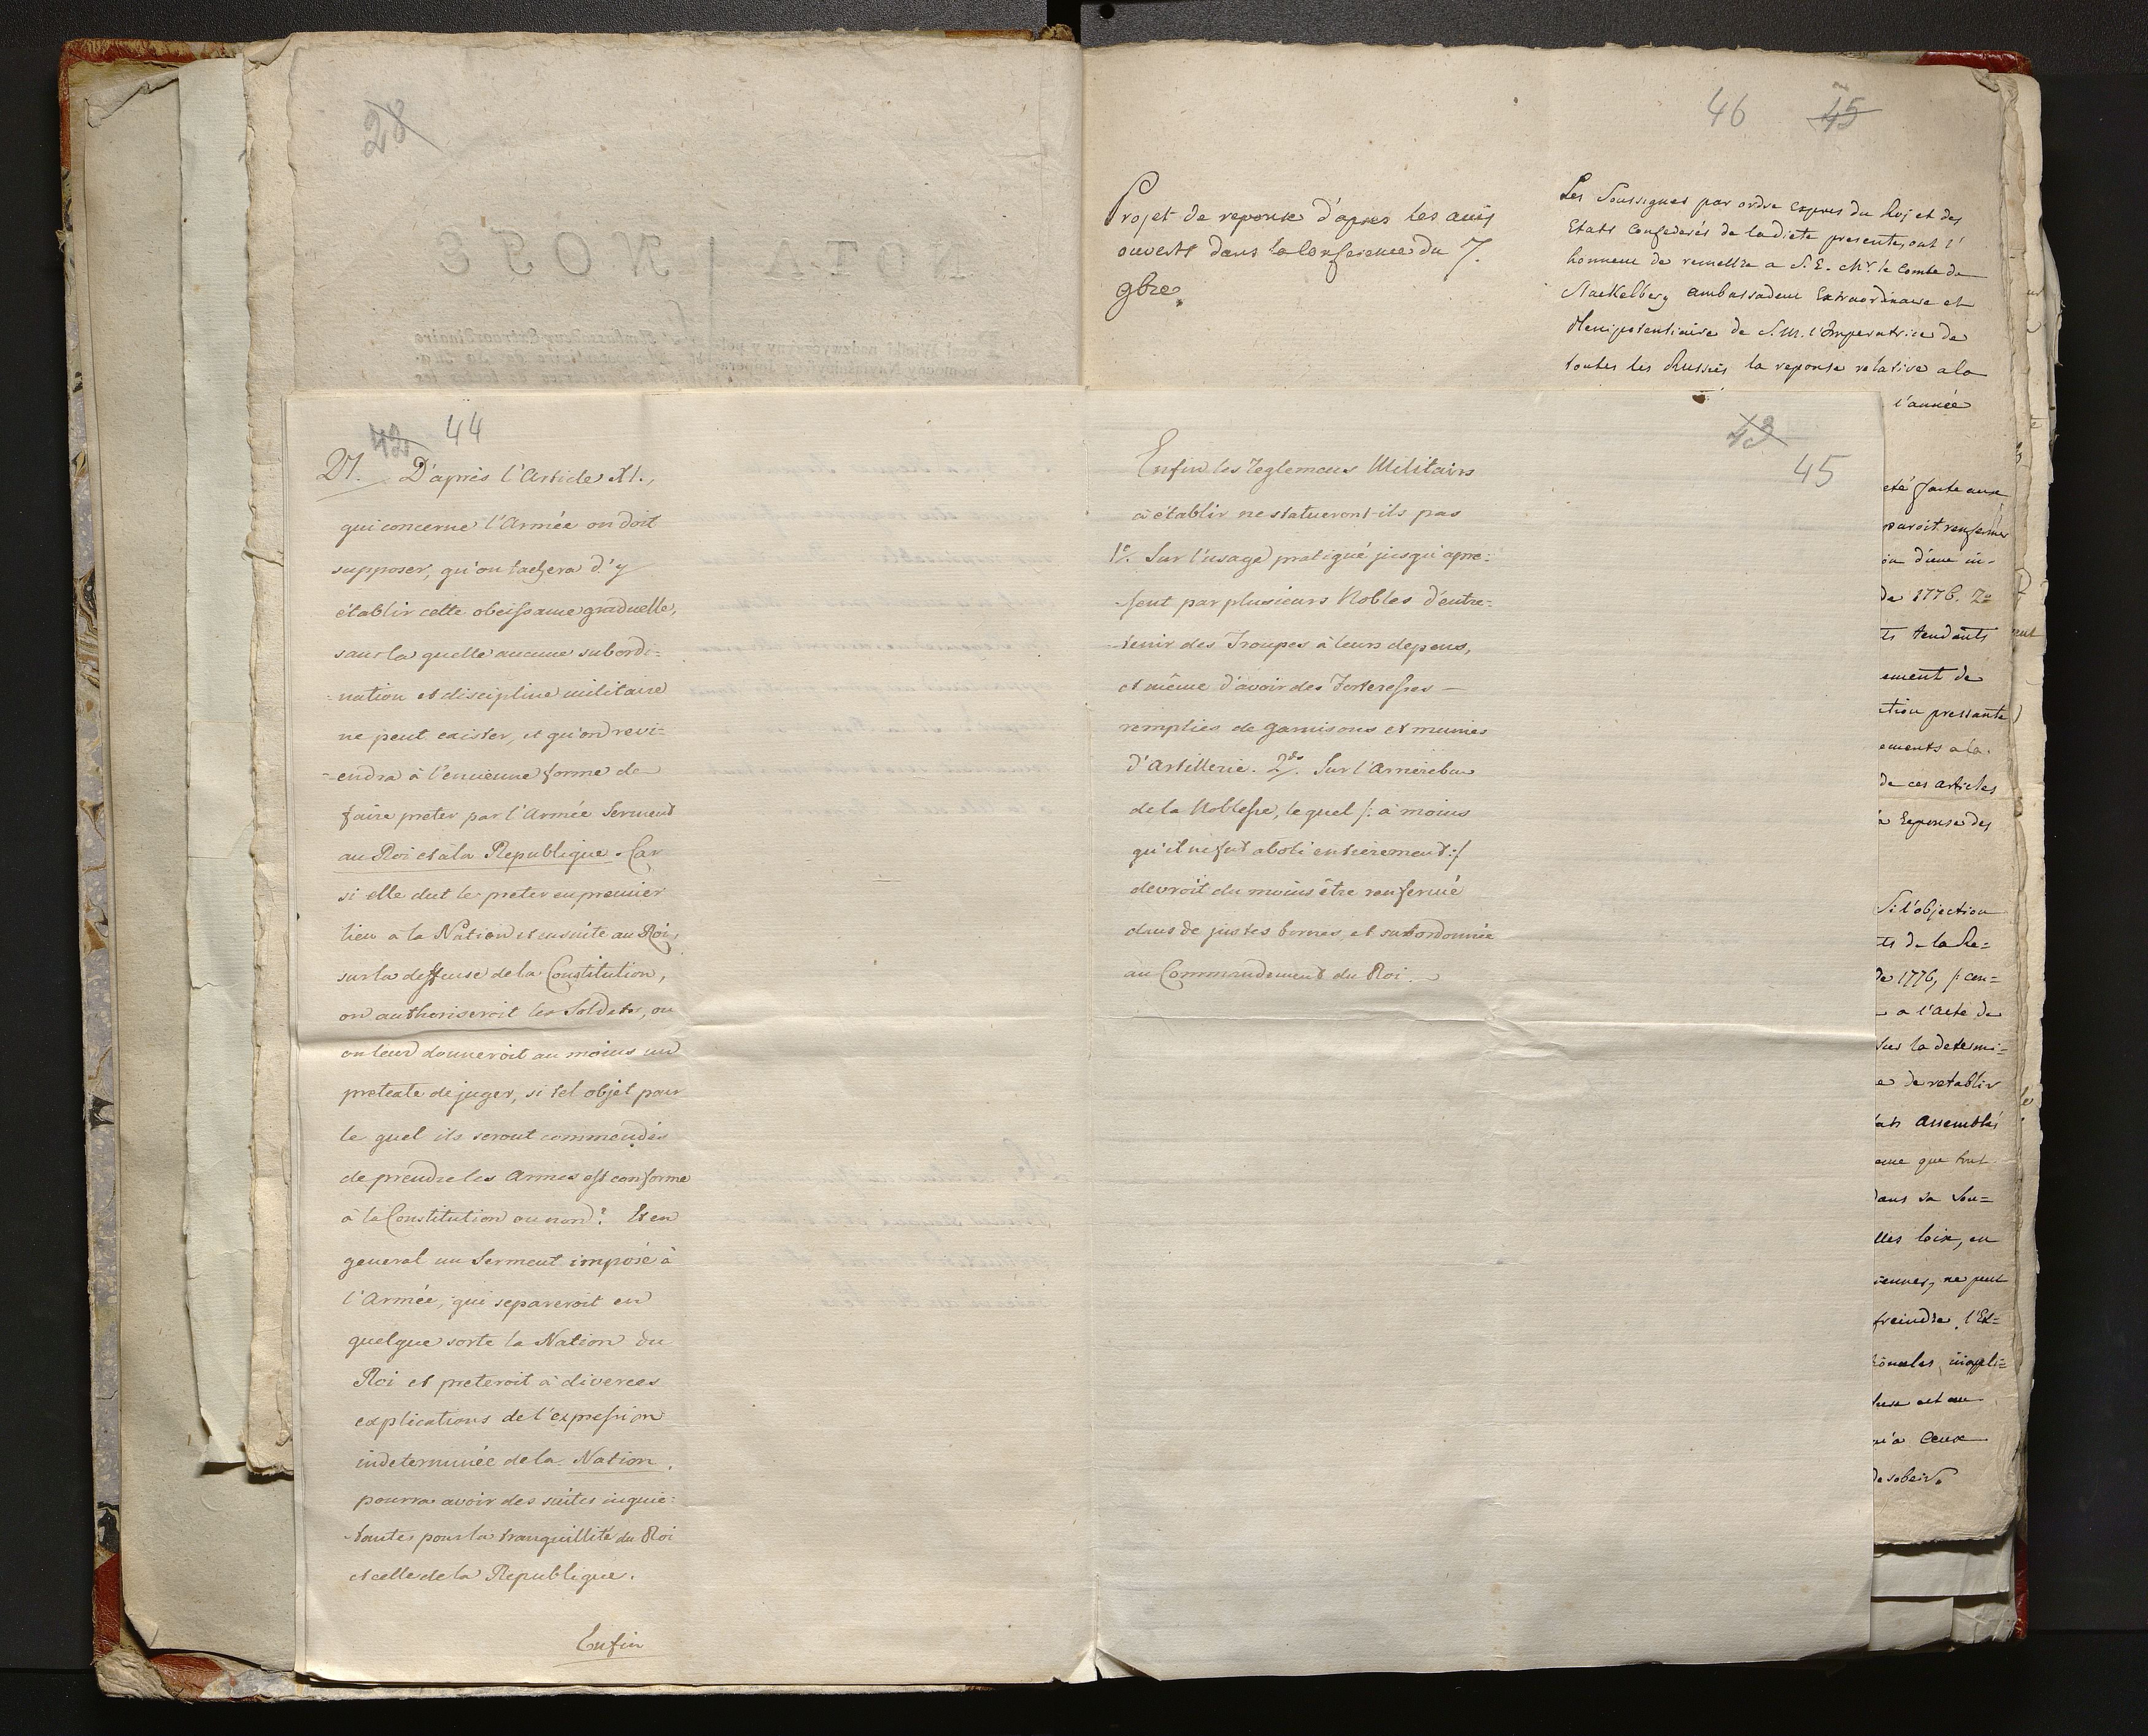 28
NOTA
NOTE
46 45
Projet de reponse d'apres les avis
ouverts dans la Conference du 7.
9bre.
Les Soussignes par ordre expres du Roj et des
Etats Confederés de la diete presente, ont l'
honneur de remettre a S. E. Mr. le Comte de
Stackelberg ambassadeur Extraordinaire et
Plenipotentiaire de S. M. l'Imperatrice de
toutes les Russies la reponse relative a la
l'année
eté faite aux
paroit renfermer
on d'une in-
de 1776. 2o
ts tendants
ement de
ction pressante
ements a la
de ces articles
a Reponse des
Si l'objection
ts de la Re=
de 1776, /: con=
a l'acte de
sur la determi=
e de retablir
ats assemblés
eme que tout
dans sa Sou=
lles loix, en
iennes, ne peut
freindre. l'Ex=
qu'a Ceux
desobeir.
43 44
21. D'aprés l'Article XI.,
qui concerne l'Armée on doit
supposer, qu'on tachera d'y
établir cette obeissance graduelle,
sans la quelle aucune subordi=
=nation et discipline militaire
ne peut exister, et qu'on revi=
=endra à l'encienne forme de
faire preter par l'Armée Serment
au Roi et à la Republique. Car
si elle dut le preter en premier
lieu a la Nation et ensuite au Roi,
sur la deffense de la Constitution,
on authoriseroit les Soldats, ou
on leur donneroit au moins un
pretexte de juger, si tel objet pour
le quel ils seront commendés
de prendre les Armes est conforme
à la Constitution ou non? Et en
general un Serment imposé à
l'Armée, qui separeroit en
quelque sorte la Nation du
Roi et preteroit à diverces
explications de l'expression
indeterminée de la Nation,
pourra avoir des suites inquie=
=tantes pour la tranquillité du Roi
et celle de la Republique.
Enfin
43
45
Enfin les Reglemens Militairs
à établir ne statueront-ils pas
1o. Sur l'usage pratiqué jusqu'apre=
=sent par plusieurs Nobles d'entre=
=tenir des Troupes à leurs depens,
et même d'avoir des Forteresses —
remplies de garnisons et munies
d'Artillerie. 2do. Sur l'Arrièreban
de la Noblesse, lequel /: à moins
qu'il ne fut aboli entierement :/
devroit du moins être renfermé
dans de justes bornes, et subordonnée
au Commandement du Roi.